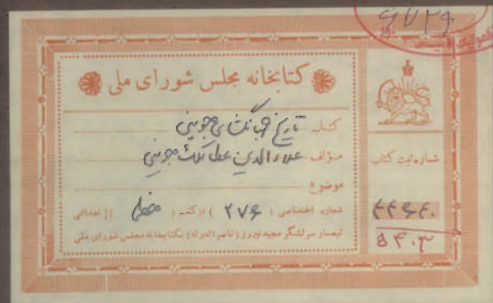 کتابخانه مجلس شورای ملی
کتاب تاریخ جهانگشای جوینی
مؤلف علاءالدین عطاملک جوینی
موضوع
شماره اختصاصی ( ۲۷۶ ) از کتب ( خطی ) اهدائی
تیمسار سرلشکر مجید فیروز (ناصرالدوله) بکتابخانه مجلس شورای ملی
شماره ثبت کتاب
۵۴۰۳